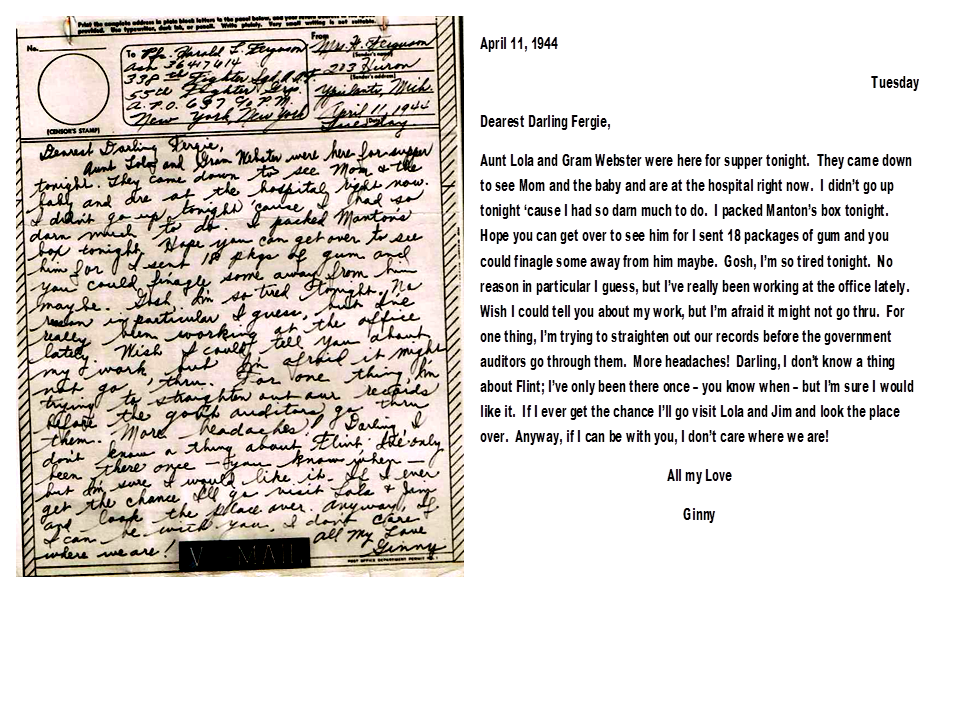 Print the complete address in plain block letters in the panel below, and your return address in the
provided. Use typewriter, dark ink, or pencil. Write plainly. Very small writing is not suitable.
No.
(CENSOR'S STAMP)
To Pfc. Harold L. Ferguson
ASN 36417614
338th Fighter Sqd. A.A.F.
55th Fighter Grp.
A.P.O. 637 % P.M.
New York, New York
From
Mrs. H. Ferguson
(Sender's name)
203 Huron
(Sender's address)
Ypsilanti, Mich.
April 11, 1944
(Date)
Tuesday
Dearest Darling Fergie,
Aunt Lola and Gram Webster were here for supper
tonight. They came down to see Mom & the
baby and are at the hospital right now.
I didn't go up tonight 'cause I had so
darn much to do. I packed Manton's
box tonight. Hope you can get over to see
him for I sent 18 pkgs of gum and
you could finagle some away from him
maybe. Gosh, I'm so tired tonight. No
reason in particular I guess, but I've
really been working at the office
lately. Wish I could tell you about
my work but I'm afraid it might
not go thru. For one thing, I'm
trying to straighten out our records
before the gov't auditors go thru
them. More headaches! Darling, I
don't know a thing about Flint, I've only
been there once – you know when –
but I'm sure I would like it. If I ever
get the chance I'll go visit Lola & Jim
and look the place over. Anyway, if
I can be with you, I don't care
where we are!
All my Love
Ginny
V··· — MAIL
POST OFFICE DEPARTMENT PERMIT NO. 1
April 11, 1944
Tuesday
Dearest Darling Fergie,
Aunt Lola and Gram Webster were here for supper tonight. They came down
to see Mom and the baby and are at the hospital right now. I didn't go up
tonight ‘cause I had so darn much to do. I packed Manton's box tonight.
Hope you can get over to see him for I sent 18 packages of gum and you
could finagle some away from him maybe. Gosh, I'm so tired tonight. No
reason in particular I guess, but I've really been working at the office lately.
Wish I could tell you about my work, but I'm afraid it might not go thru. For
one thing, I'm trying to straighten out our records before the government
auditors go through them. More headaches! Darling, I don't know a thing
about Flint; I've only been there once – you know when – but I'm sure I would
like it. If I ever get the chance I'll go visit Lola and Jim and look the place
over. Anyway, if I can be with you, I don't care where we are!
All my Love
Ginny